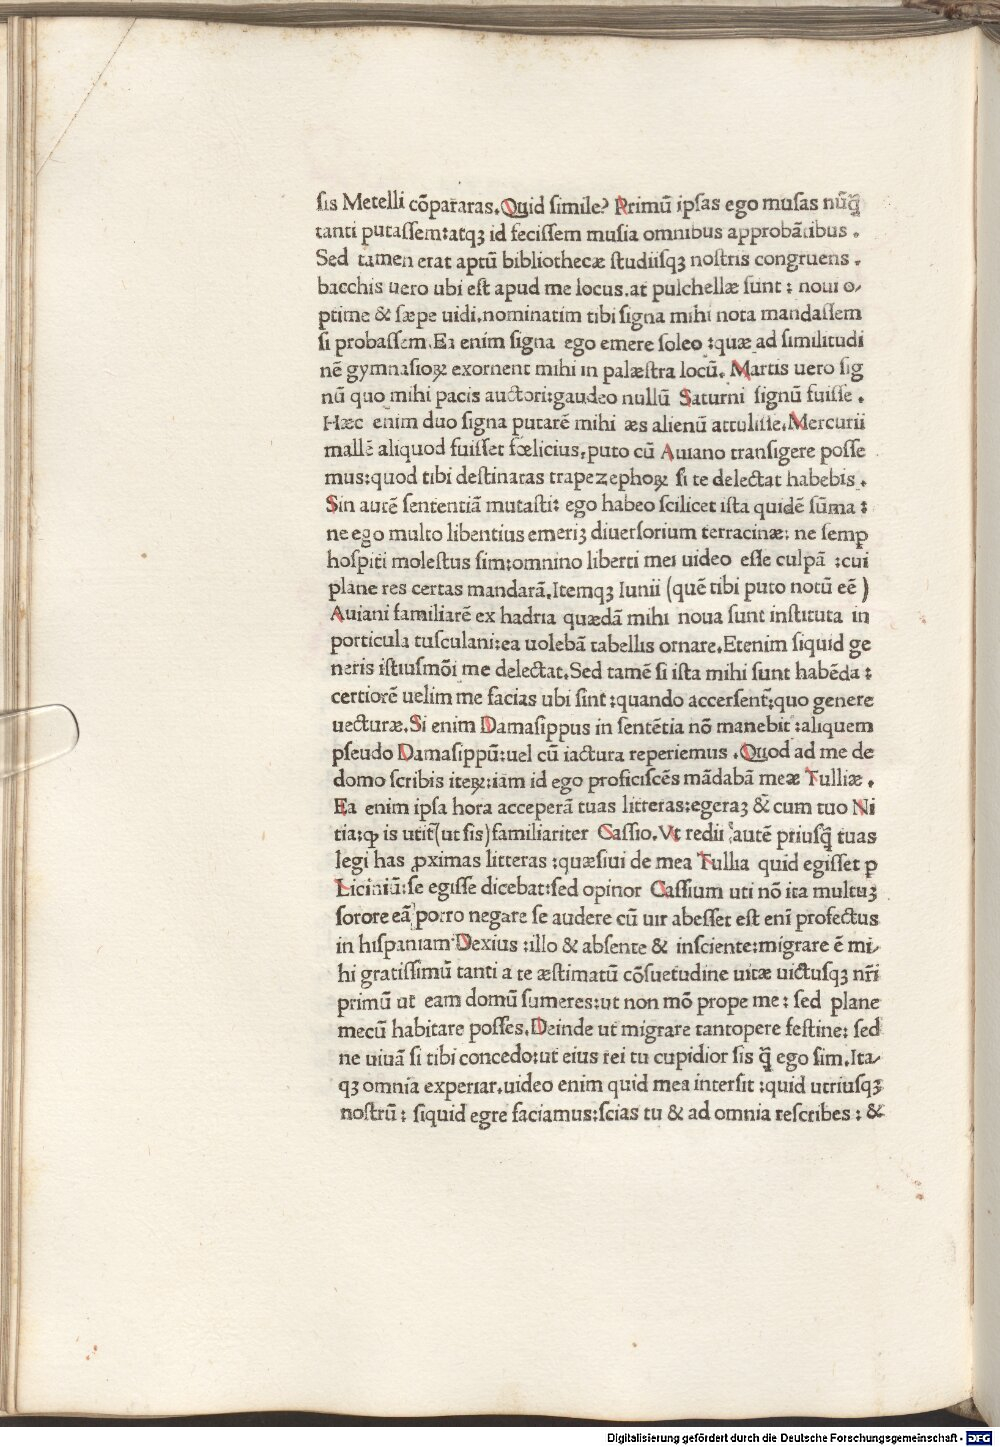 ſis Metelli cõpararas. Quid ſimile? Primũ ipſas ego muſas nũq̃
tanti putaſſem: atqꝫ id feciſſem muſia omnibus approbãtibus.
Sed tamen erat aptũ bibliothecæ ſtudiiſqꝫ noſtris congruens.
bacchis uero ubi eſt apud me locus. at pulchellæ ſunt: noui o⸗
ptime & ſæpe uidi. nominatim tibi ſigna mihi nota mandaſſem
ſi probaſſem. Ea enim ſigna ego emere ſoleo: quæ ad ſimilitudi
nẽ gymnaſioꝝ exornent mihi in palæſtra locũ. Martis uero ſig
nũ quo mihi pacis auctori: gaudeo nullũ Saturni ſignũ fuiſſe.
Hæc enim duo ſigna putarẽ mihi æs alienũ attuliſſe. Mercurii
mallẽ aliquod fuiſſet fœlicius. puto cũ Auiano tranſigere poſſe
mus: quod tibi deſtinaras trapezephoꝝ ſi te delectat habebis.
Sin autẽ ſententiã mutaſti: ego habeo ſcilicet iſta quidẽ ſũma:
ne ego multo libentius emeriꝫ diuerſorium terracinæ: ne ſemꝑ
hoſpiti moleſtus ſim: omnino liberti mei uideo eſſe culpã: cui
plane res certas mandarã. Itemqꝫ Iunii (quẽ tibi puto notũ eẽ)
Auiani familiarẽ ex hadria quædã mihi noua ſunt inſtituta in
porticula tuſculani: ea uolebã tabellis ornare. Etenim ſiquid ge
neris iſtiuſmõi me delectat. Sed tamẽ ſi iſta mihi ſunt habẽda:
certiorẽ uelim me facias ubi ſint: quando accerſent̃: quo genere
uecturæ. Si enim Damaſippus in ſentẽtia nõ manebit: aliquem
pſeudo Damaſippũ: uel cũ iactura reperiemus. Quod ad me de
domo ſcribis iteꝝ: iam id ego proficiſcẽs mãdabã meæ Tulliæ.
Ea enim ipſa hora acceperã tuas litteras: egeraꝫ & cum tuo Ni
tia: ꝙ is utit̃ (ut ſis) familiariter Caſſio. Vt redii autẽ priuſq̃ tuas
legi has ꝓximas litteras: quæſiui de mea Tullia quid egiſſet ꝑ
Liciniũ: ſe egiſſe dicebat: ſed opinor Caſſium uti nõ ita multuꝫ
ſorore eã porro negare ſe audere cũ uir abeſſet eſt enĩ profectus
in hiſpaniam Dexius: illo & abſente & inſciente: migrare ẽ mi⸗
hi gratiſſimũ tanti a te æſtimatũ cõſuetudine uitæ uictuſqꝫ nr̃i
primũ ut eam domũ ſumeres: ut non mõ prope me: ſed plane
mecũ habitare poſſes. Deinde ut migrare tantopere feſtine: ſed
ne uiuã ſi tibi concedo: ut eius rei tu cupidior ſis q̃ ego ſim. Ita⸗
qꝫ omnia experiar. uideo enim quid mea interſit: quid utriuſqꝫ
noſtrũ: ſiquid egre faciamus: ſcias tu & ad omnia reſcribes: &
Digitalisierung gefördert durch die Deutsche Forschungsgemeinschaft - DFG